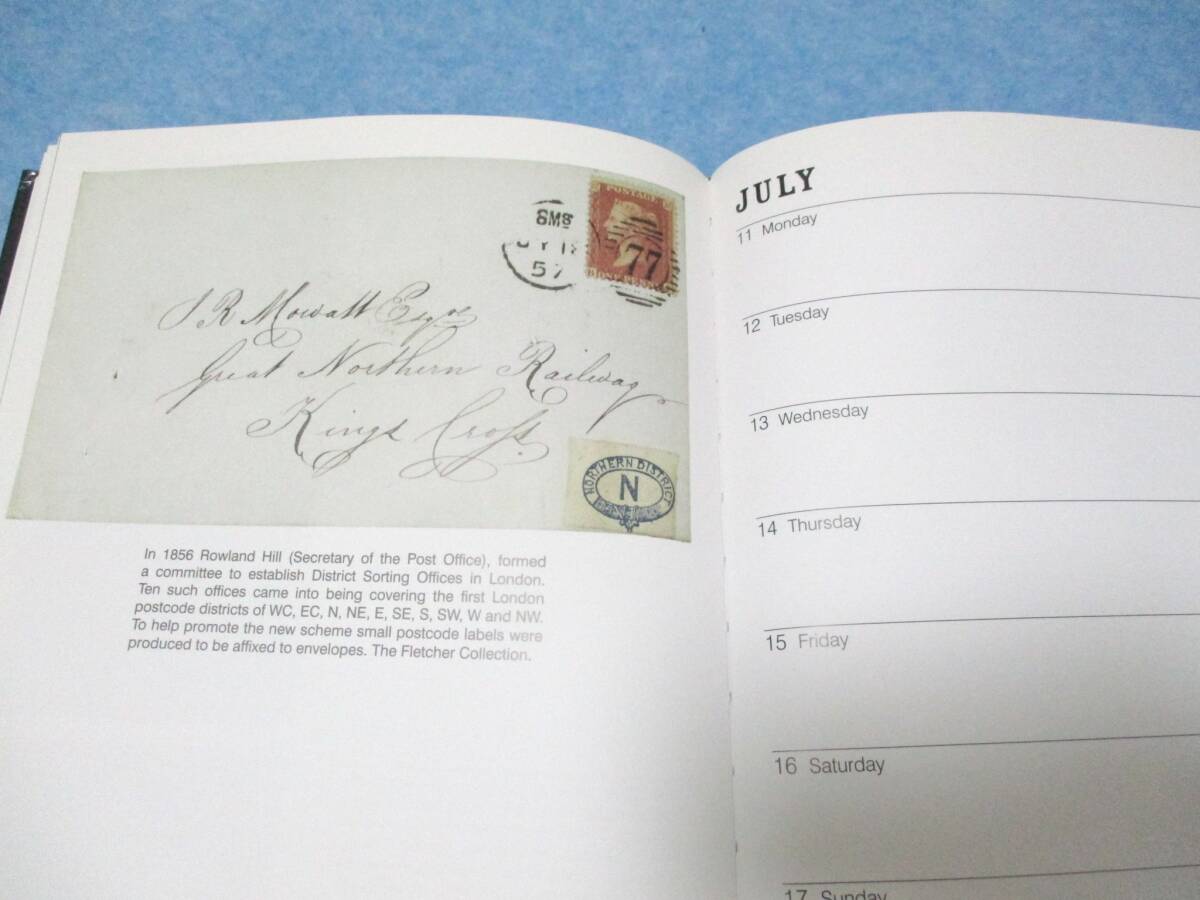 POSTAGE
8MS
JY 1
57
77
ONE PENNY
J R Mowatt Esqre
Great Northern Railway
Kings Cross
NORTHERN DISTRICT
N
In 1856 Rowland Hill (Secretary of the Post Office), formed
a committee to establish District Sorting Offices in London.
Ten such offices came into being covering the first London
postcode districts of WC, EC, N, NE, E, SE, S, SW, W and NW.
To help promote the new scheme small postcode labels were
produced to be affixed to envelopes. The Fletcher Collection.
JULY
11 Monday
12 Tuesday
13 Wednesday
14 Thursday
15 Friday
16 Saturday
17 Sunday